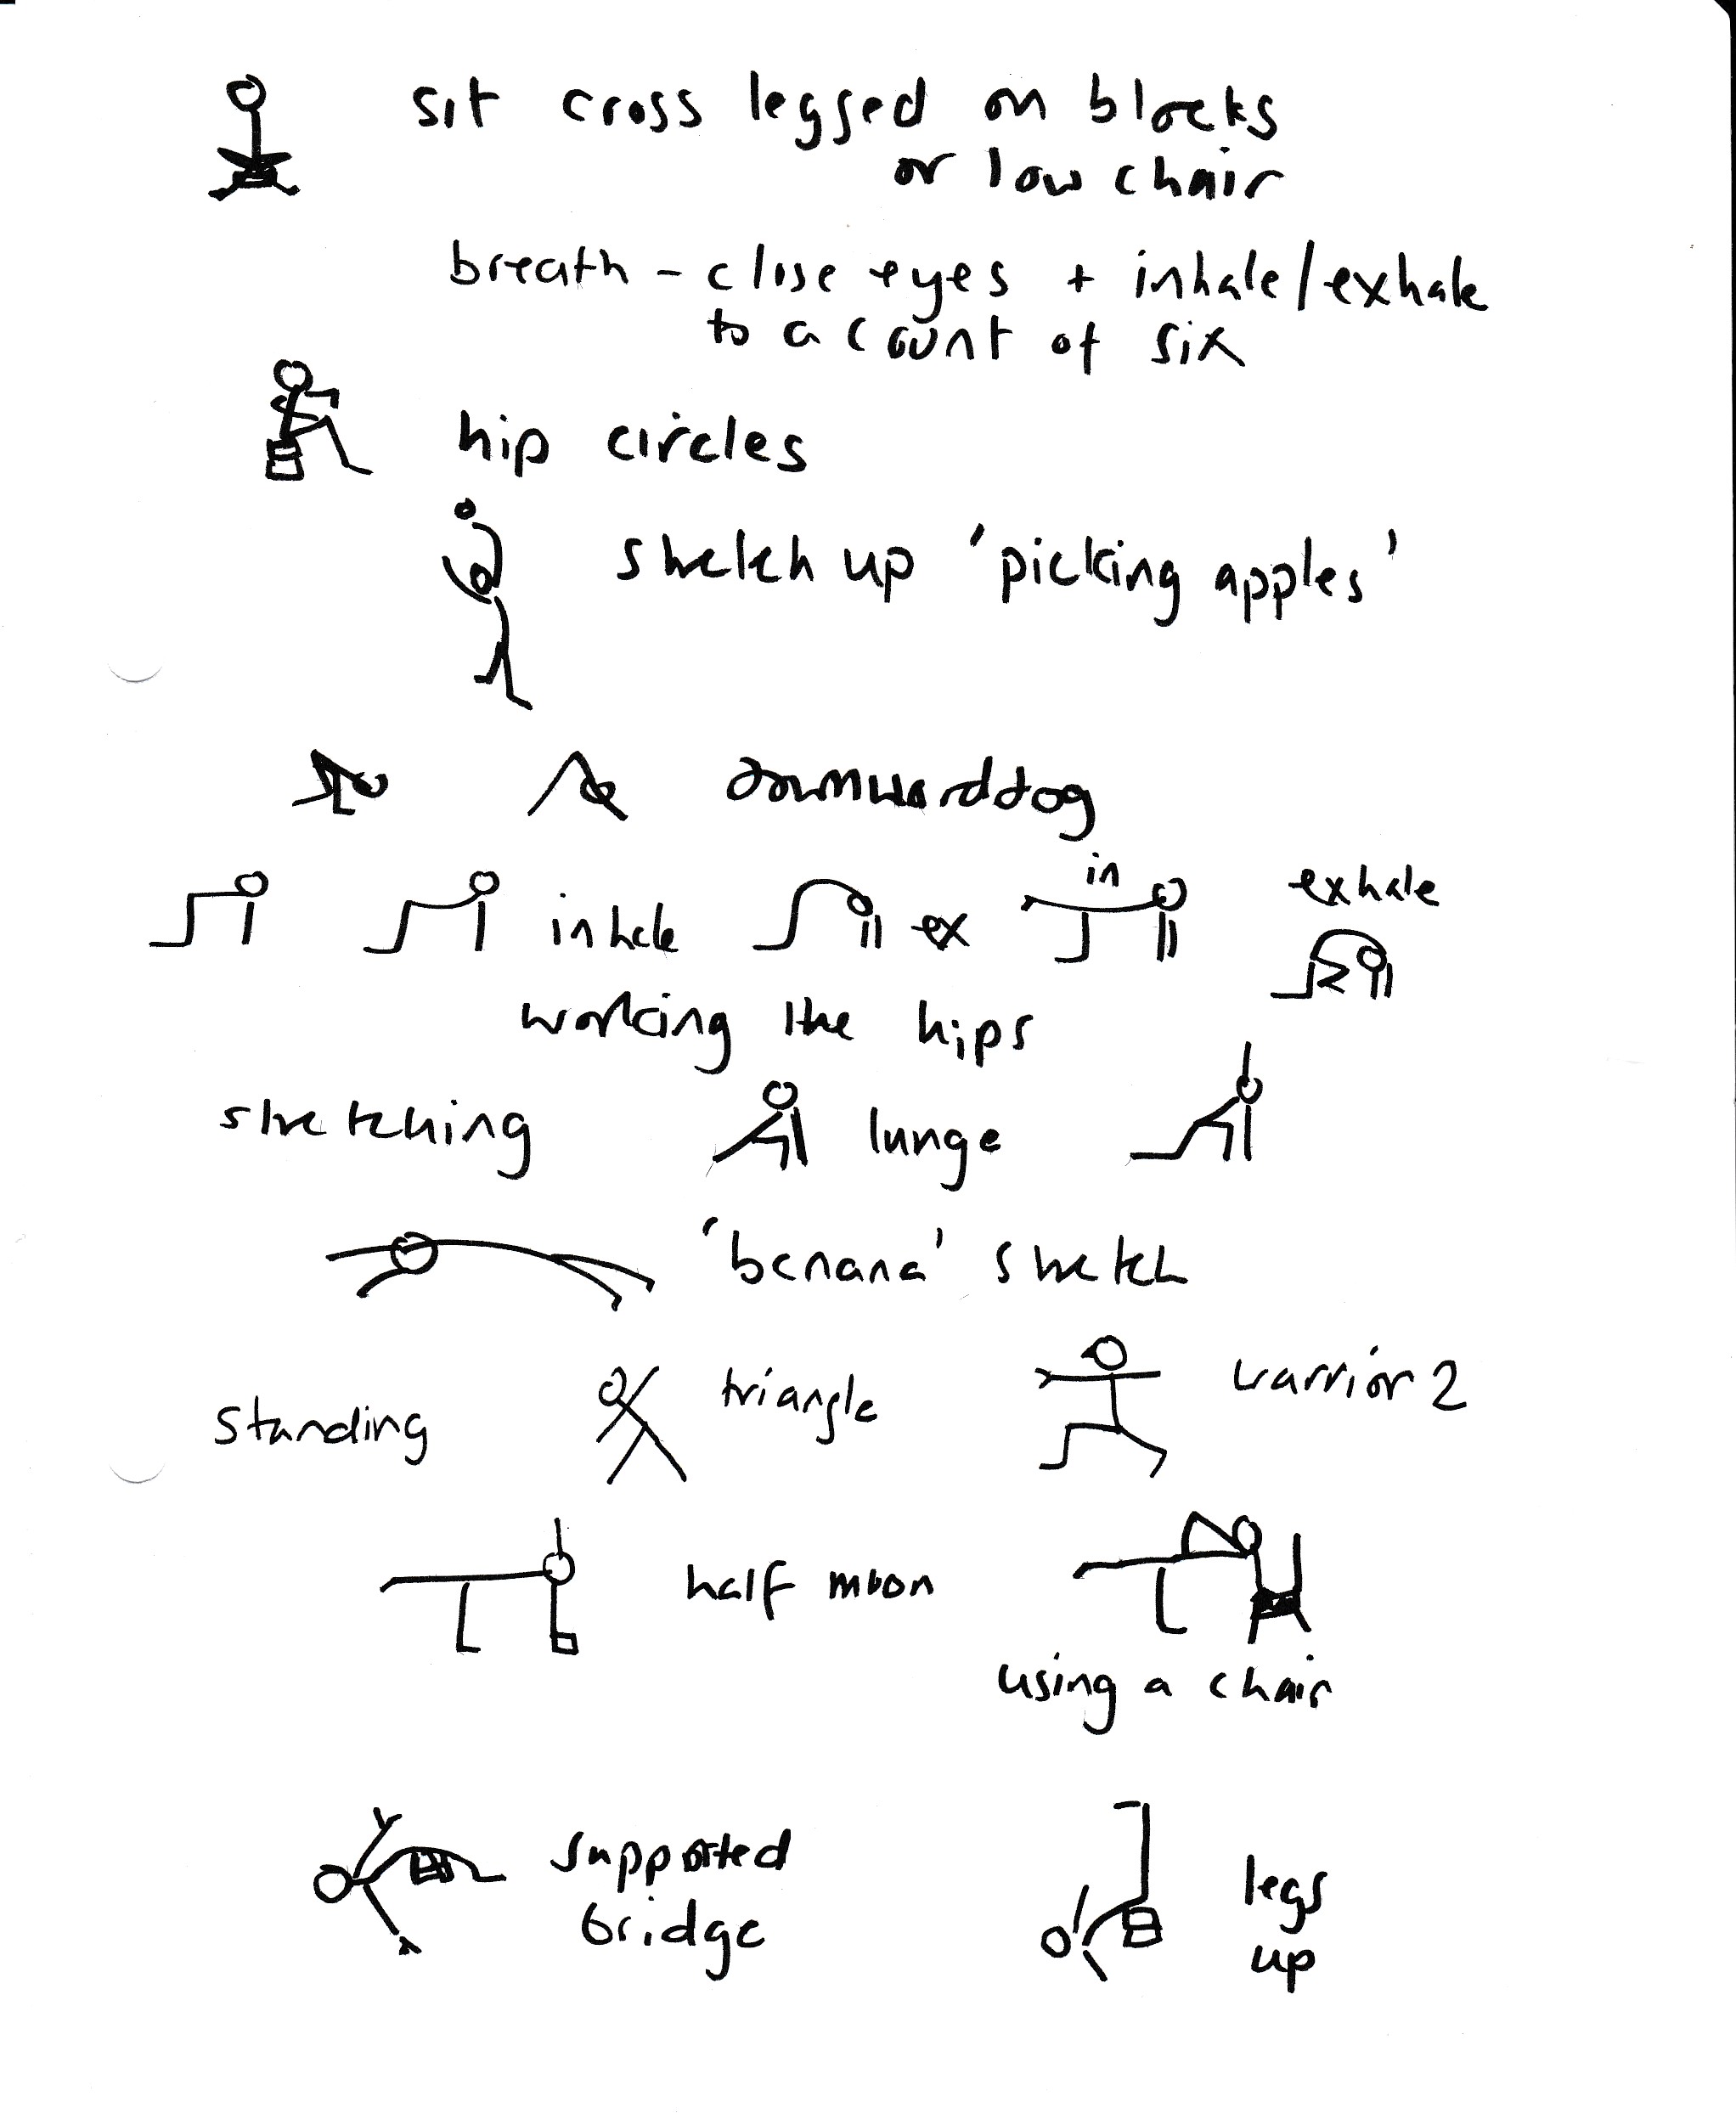 sit cross legged on blocks
or low chair
breath - close eyes + inhale/exhale
to a count of six
hip circles
stretch up 'picking apples'
downward dog
inhale ex in exhale
working the hips
stretching lunge
'banana' stretch
standing triangle warrior 2
half moon
using a chair
supported
bridge
legs
up